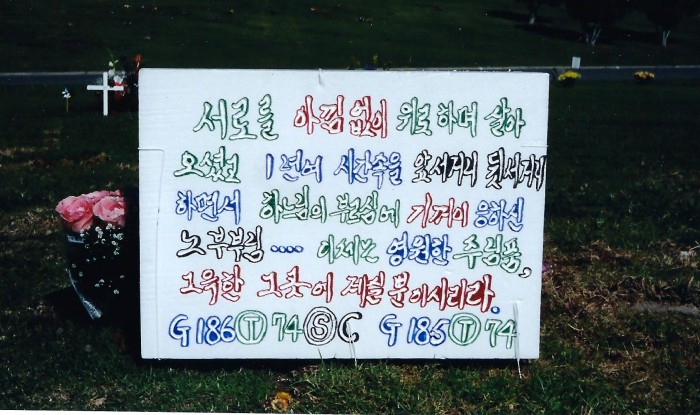 서로를 아낌 없이 위로하며 살아
오셨고 1년여 시간속을 앞서거니 뒷서거니
하면서 하느님의 부르심에 기꺼이 응하신
노부부님 ···· 이제는 영원한 주님품,
그윽한 그곳에 계실 분이시리라.
G186Ⓣ74ⓈC G185Ⓣ74